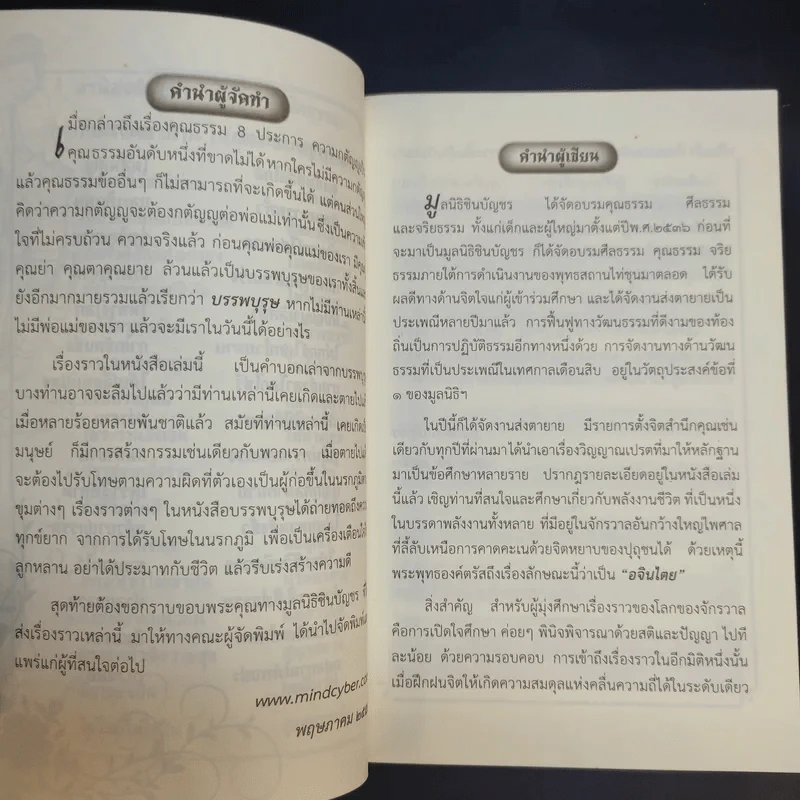 คำนำผู้จัดทำ
เมื่อกล่าวถึงเรื่องคุณธรรม 8 ประการ ความกตัญญูเป็น
คุณธรรมอันดับหนึ่งที่ขาดไม่ได้ หากใครไม่มีความกตัญญู
แล้วคุณธรรมข้ออื่นๆ ก็ไม่สามารถที่จะเกิดขึ้นได้ แต่คนส่วนใหญ่
คิดว่าความกตัญญูจะต้องกตัญญูต่อพ่อแม่เท่านั้น ซึ่งเป็นความเข้า
ใจที่ไม่ครบถ้วน ความจริงแล้ว ก่อนคุณพ่อคุณแม่ของเรา มีคุณปู่
คุณย่า คุณตาคุณยาย ล้วนแล้วเป็นบรรพบุรุษของเราทั้งสิ้นและ
ยังอีกมากมายรวมแล้วเรียกว่า บรรพบุรุษ หากไม่มีท่านเหล่านี้
ไม่มีพ่อแม่ของเรา แล้วจะมีเราในวันนี้ได้อย่างไร
เรื่องราวในหนังสือเล่มนี้ เป็นคำบอกเล่าจากบรรพบุรุษ
บางท่านอาจจะลืมไปแล้วว่ามีท่านเหล่านี้เคยเกิดและตายไปแล้ว
เมื่อหลายร้อยหลายพันชาติแล้ว สมัยที่ท่านเหล่านี้ เคยเกิดเป็น
มนุษย์ ก็มีการสร้างกรรมเช่นเดียวกับพวกเรา เมื่อตายไปแล้ว
จะต้องไปรับโทษตามความผิดที่ตัวเองเป็นผู้ก่อขึ้นในนรกภูมิตาม
ขุมต่างๆ เรื่องราวต่างๆ ในหนังสือบรรพบุรุษได้ถ่ายทอดถึงความ
ทุกข์ยาก จากการได้รับโทษในนรกภูมิ เพื่อเป็นเครื่องเตือนใจให้
ลูกหลาน อย่าได้ประมาทกับชีวิต แล้วรีบเร่งสร้างความดี
สุดท้ายต้องขอกราบขอบพระคุณทางมูลนิธิชินบัญชร ที่
ส่งเรื่องราวเหล่านี้ มาให้ทางคณะผู้จัดพิมพ์ ได้นำไปจัดพิมพ์เผย
แพร่แก่ผู้ที่สนใจต่อไป
www.mindcyber.co
พฤษภาคม
คำนำผู้เขียน
มูลนิธิชินบัญชร ได้จัดอบรมคุณธรรม ศีลธรรม
และจริยธรรม ทั้งแก่เด็กและผู้ใหญ่มาตั้งแต่ปีพ.ศ.๒๕๓๖ ก่อนที่
จะมาเป็นมูลนิธิชินบัญชร ก็ได้จัดอบรมศีลธรรม คุณธรรม จริย
ธรรมภายใต้การดำเนินงานของพุทธสถานไท่ชุนมาตลอด ได้รับ
ผลดีทางด้านจิตใจแก่ผู้เข้าร่วมศึกษา และได้จัดงานส่งตายายเป็น
ประเพณีหลายปีมาแล้ว การฟื้นฟูทางวัฒนธรรมที่ดีงามของท้อง
ถิ่นเป็นการปฏิบัติธรรมอีกทางหนึ่งด้วย การจัดงานทางด้านวัฒน
ธรรมที่เป็นประเพณีในเทศกาลเดือนสิบ อยู่ในวัตถุประสงค์ข้อที่
๑ ของมูลนิธิฯ
ในปีนี้ก็ได้จัดงานส่งตายาย มีรายการตั้งจิตสำนึกคุณเช่น
เดียวกับทุกปีที่ผ่านมาได้นำเอาเรื่องวิญญาณเปรตที่มาให้หลักฐาน
มาเป็นข้อศึกษาหลายราย ปรากฏรายละเอียดอยู่ในหนังสือเล่ม
นี้แล้ว เชิญท่านที่สนใจและศึกษาเกี่ยวกับพลังงานชีวิต ที่เป็นหนึ่ง
ในบรรดาพลังงานทั้งหลาย ที่มีอยู่ในจักรวาลอันกว้างใหญ่ไพศาล
ที่ลี้ลับเหนือการคาดคะเนด้วยจิตหยาบของปุถุชนได้ ด้วยเหตุนี้
พระพุทธองค์ตรัสถึงเรื่องลักษณะนี้ว่าเป็น "อจินไตย"
สิ่งสำคัญ สำหรับผู้มุ่งศึกษาเรื่องราวของโลกของจักรวาล
คือการเปิดใจศึกษา ค่อยๆ พินิจพิจารณาด้วยสติและปัญญา ไปที
ละน้อย ด้วยความรอบคอบ การเข้าถึงเรื่องราวในอีกมิติหนึ่งนั้น
เมื่อฝึกฝนจิตให้เกิดความสมดุลแห่งคลื่นความถี่ได้ในระดับเดียว